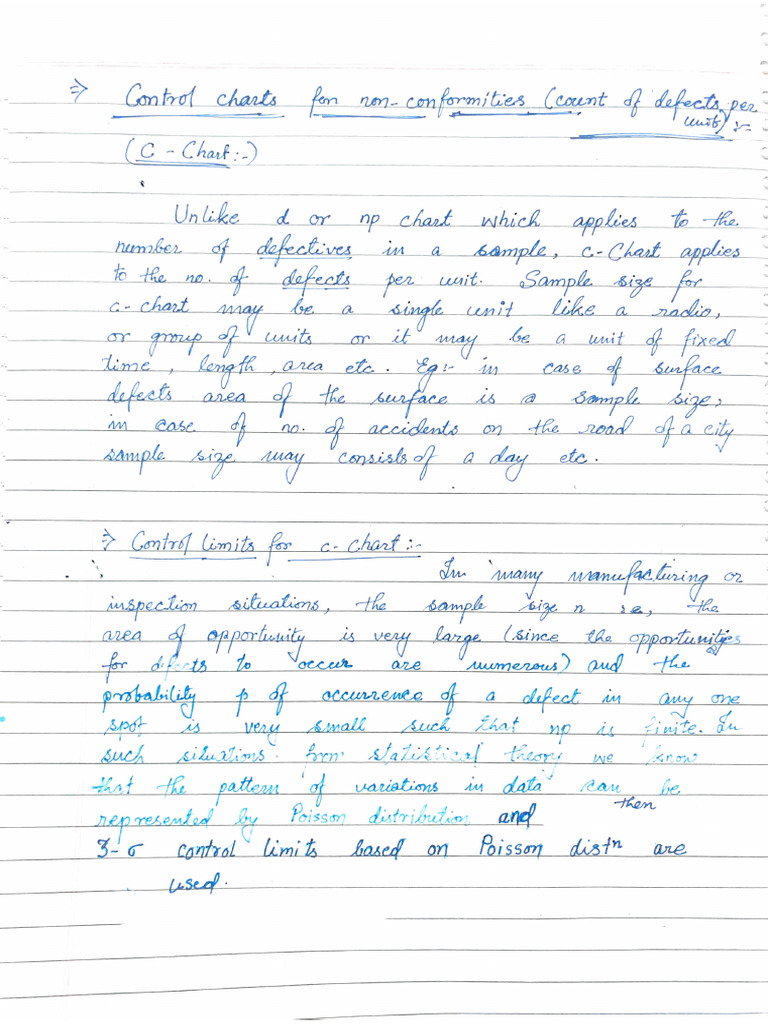 ⇒ Control charts for non-conformities (count of defects per
unit) :-
(C - Chart :-)
Unlike d or np chart which applies to the
number of defectives in a sample, c-Chart applies
to the no. of defects per unit. Sample size for
c-chart may be a single unit like a radio,
or group of units or it may be a unit of fixed
time, length, area etc. Eg:- in case of surface
defects area of the surface is a sample size,
in case of no. of accidents on the road of a city
sample size may consists of a day etc.
⇒ Control limits for c-chart :-
In many manufacturing or
inspection situations, the sample size n i.e., the
area of opportunity is very large (since the opportunities
for defects to occur are numerous) and the
probability p of occurrence of a defect in any one
spot is very small such that np is finite. In
such situations from statistical theory we know
that the pattern of variations in data can be
represented by Poisson distribution and then
3-σ control limits based on Poisson distn are
used.